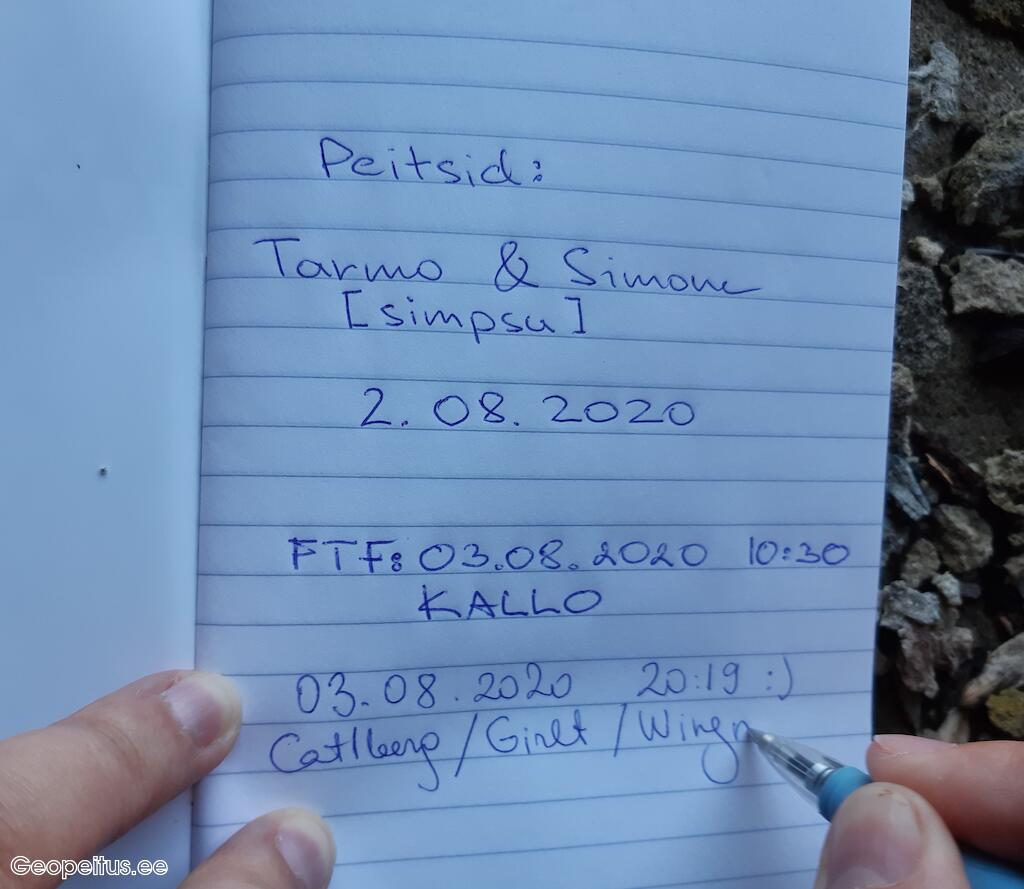 Peitsid:
Tarmo & Simone
[simpsu]
2. 08. 2020
FTF: 03.08.2020 10:30
KALLO
03.08.2020 20:19 :)
/ Girlt /
Geopeitus.ee